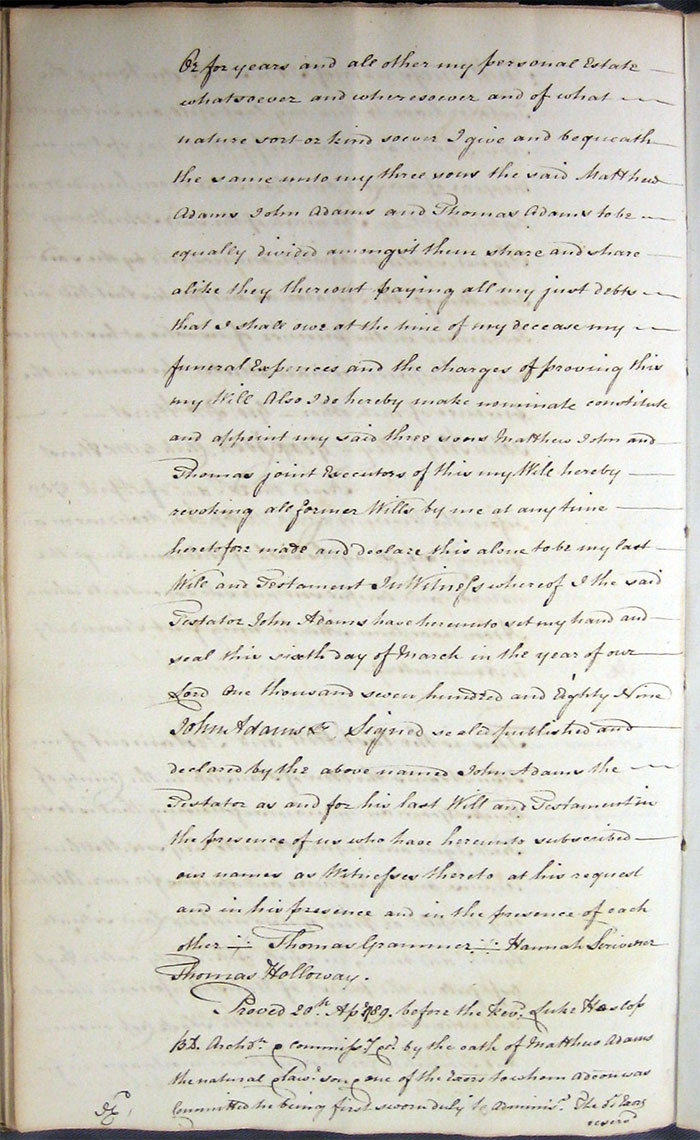 Or for years and all other my personal Estate
whatsoever and wheresoever and of what
nature sort or kind soever I give and bequeath
the same unto my three sons the said Matthew
Adams John Adams and Thomas Adams to be
equally divided amongst them share and share
alike they thereout paying all my just debts
that I shall owe at the time of my decease my
funeral Expences and the charges of proving this
my Will Also I do hereby make nominate constitute
and appoint my said three sons Matthew John and
Thomas joint Executors of this my Will hereby
revoking all former Wills by me at any time
heretofore made and declare this alone to be my last
Will and Testament In Witness whereof I the said
Testator John Adams have hereunto set my hand and
seal this sixth day of March in the year of our
Lord One thousand seven hundred and Eighty Nine
John Adams Signed sealed published and
declared by the above named John Adams the
Testator as and for his last Will and Testament in
the presence of us who have hereunto subscribed
our names as Witnesses thereto at his request
and in his presence and in the presence of each
other Thomas Grammer Hannah Scrivener
Thomas Holloway.
Proved 20th Apl 1789. before the Revd. Luke Heslop
BD. Archdn. & by the oath of Matthew Adams
the natural & lawl. son & one of the Exors to whom adcon was
Committed he being first sworn duly to Adminisr. The Exors
reserd